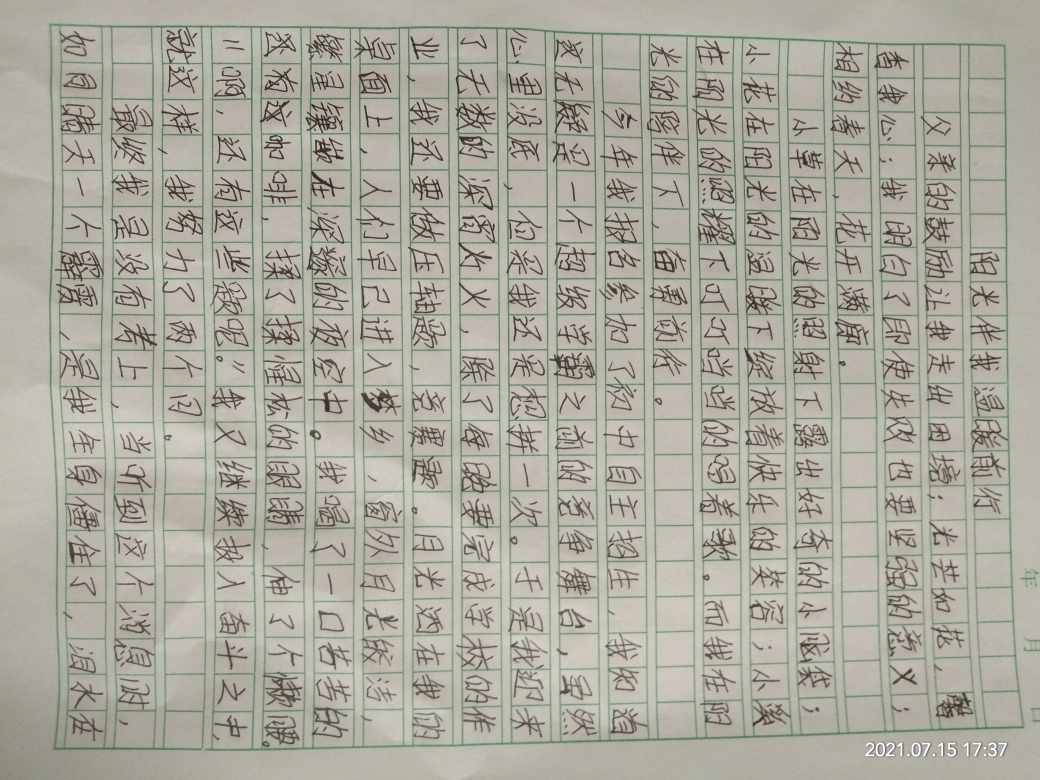 年 月 日
阳光伴我温暖前行
父亲的鼓励让我走出困境；光芒如花，馨
香我心；我明白了即使失败也要坚强的意义；
相约春天，花开满庭。
小草在阳光的照射下露出好奇的小脑袋；
小花在阳光的温暖下绽放着快乐的笑容；小溪
在阳光的照耀下叮叮当当的唱着歌。而我在阳
光的陪伴下，奋勇前行。
今年我报名参加了初中自主招生，我知道
这无疑是一个超级学霸之间的竞争擂台，虽然
心里没底，但是我还是想拼一次。于是我迎来
了无数的深窗灯火，除了每日要完成学校的作
业，我还要做压轴题，竞赛题。月光洒在我的
桌面上，人们早已进入梦乡，窗外月光皎洁，
繁星镶嵌在深邃的夜空中。我喝了一口苦苦的
咖啡，揉了揉惺松的眼睛，伸了个懒腰。
"啊，还有这些题呢。"我又继续投入奋斗之中，
就这样，我努力了两个月。
最终我是没有考上，当听到这个消息时，
如同晴天一个霹雳，是我全身僵住了，泪水在
2021.07.15 17:37